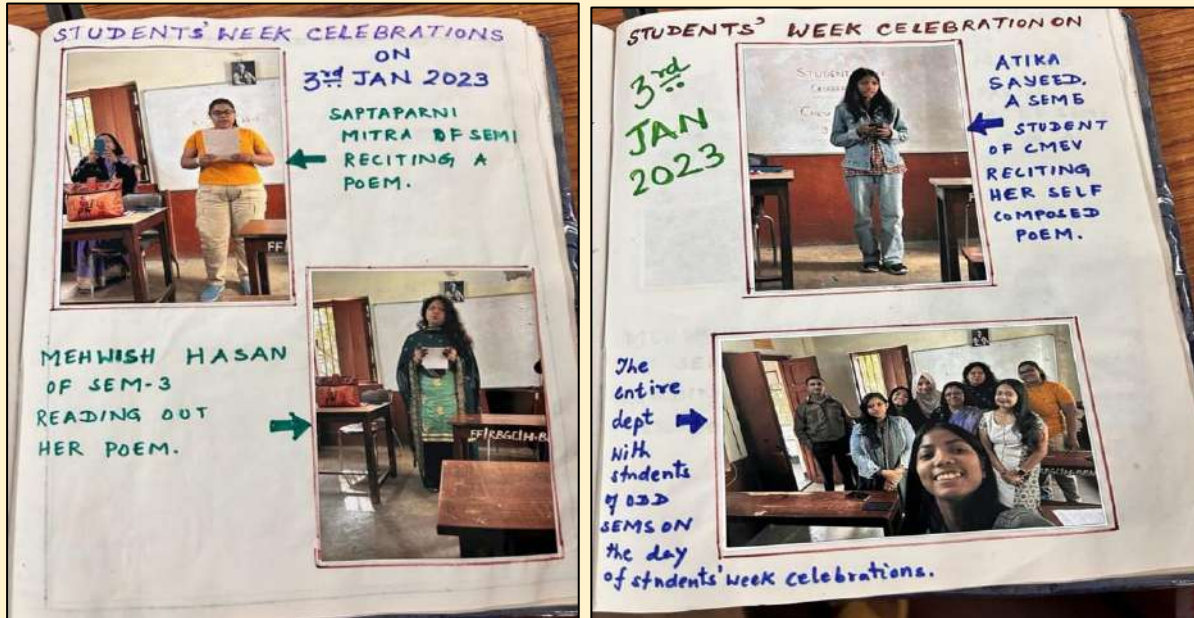 STUDENTS' WEEK CELEBRATIONS
ON
3rd JAN 2023
SAPTAPARNI
MITRA OF SEM I
RECITING A
POEM.
MEHWISH HASAN
OF SEM-3
READING OUT
HER POEM.
FF|RBGC|H.B
STUDENTS' WEEK CELEBRATION ON
3rd
JAN
2023
STUDENT
ATIKA
SAYEED,
A SEM 5
STUDENT
OF CMEV
RECITING
HER SELF
COMPOSED
POEM.
The
entire
dept
with
students
of ODD
SEMS ON
the day
of students' week celebrations.